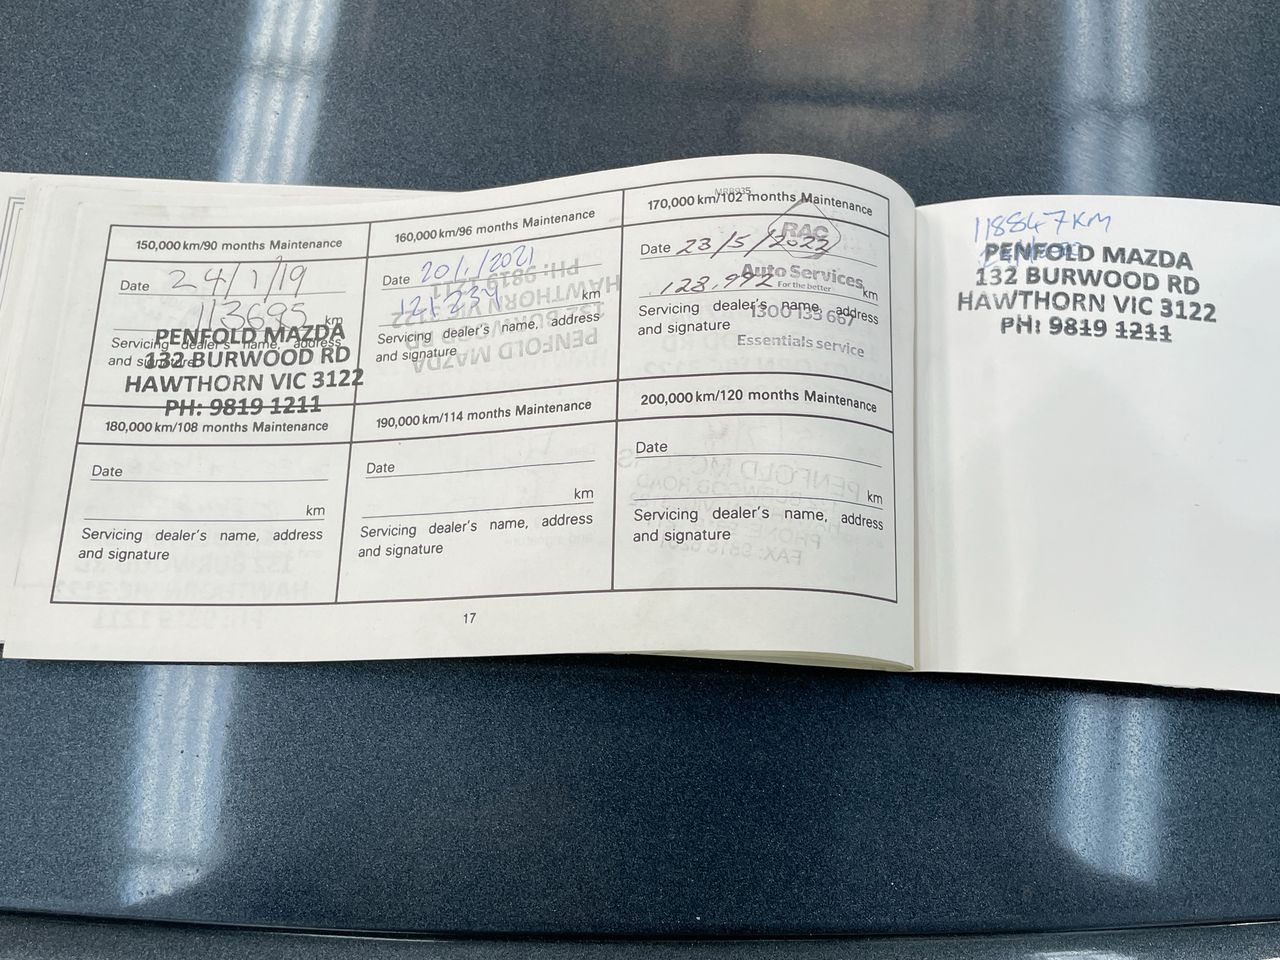 150,000 km/90 months Maintenance
Date 24/1/19
113695 km
Servicing dealer's name, address
and signature
PENFOLD MAZDA
132 BURWOOD RD
HAWTHORN VIC 3122
PH: 9819 1211
160,000 km/96 months Maintenance
Date 20/1/2021
km
Servicing dealer's name, address
and signature
PENFOLD MAZDA
132 BURWOOD RD
HAWTHORN VIC 3122
PH: 9819 1211
MRB935
170,000 km/102 months Maintenance
Date 23/5/2022
128,992 km
Servicing dealer's name, address
and signature
RAC
Auto Services
For the better
1300 133 667
Essentials service
180,000 km/108 months Maintenance
Date
km
Servicing dealer's name, address
and signature
190,000 km/114 months Maintenance
Date
km
Servicing dealer's name, address
and signature
200,000 km/120 months Maintenance
Date
km
Servicing dealer's name, address
and signature
17
118847KM
PENFOLD MAZDA
132 BURWOOD RD
HAWTHORN VIC 3122
PH: 9819 1211